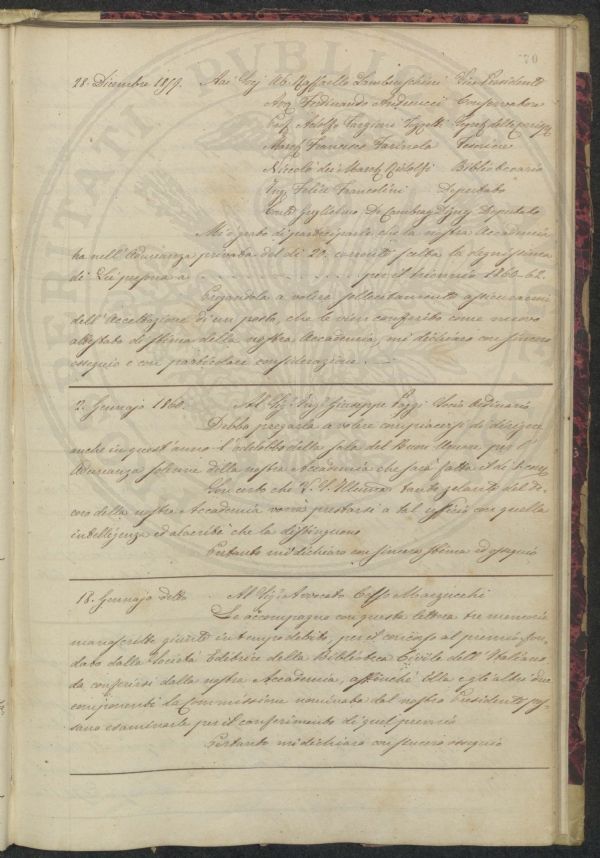 70
28. Dicembre 1859. Ai Sigri Ab. Raffaello Lambruschini Vice Presidente
Avv. Ferdinando Andreucci Conservatore
Prof. Adolfo Targioni Tozzetti Segret. delle Corrisp.
March. Francesco Farinola Tesoriere
Niccolò dei March. Ridolfi Bibliotecario
Ing. Felice Francolini Deputato
Conte Guglielmo De Cambray Digny Deputato
Mi è grato di parteciparle che la nostra Accademia
ha nell'Adunanza privata del dì 28. corrente scelta la degnissima
di Lei persona a . . . . . . per il triennio 1860-62.
Pregandola a volere sollecitamente assicurarmi
dell'Accettazione di un posto, che le vien conferito come nuovo
attestato di stima della nostra Accademia, mi dichiaro con sincero
ossequio e con particolare considerazione.
2. Gennajo 1860. Al Sigr Ingr Giuseppe Poggi Socio Ordinario
Debbo pregarla a volere compiacersi di dirigere
anche in quest'anno l'addobbo della sala del Buon Umore per l'
Adunanza solenne della nostra Accademia che sarà fatta il dì
Son certo che V. S. Illma tanto zelante del de-
coro della nostra Accademia vorrà prestarsi a tal ufficio con quella
intelligenza ed alacrità che la distinguono
Pertanto mi dichiaro con sincera stima ed ossequio
18. Gennajo detto Al Sigr Avvocato
Le accompagno con questa lettera tre memorie
manoscritte giunte in tempo debito, per il concorso al premio fon-
dato dalla Società Editrice della Biblioteca Civile dell'Italiano
da conferirsi dalla nostra Accademia, affinchè Ella e gli altri due
componenti la Commissione nominata dal nostro Presidente pos-
sano esaminarle per il conferimento di quel premio
Pertanto mi dichiaro con sincero ossequio